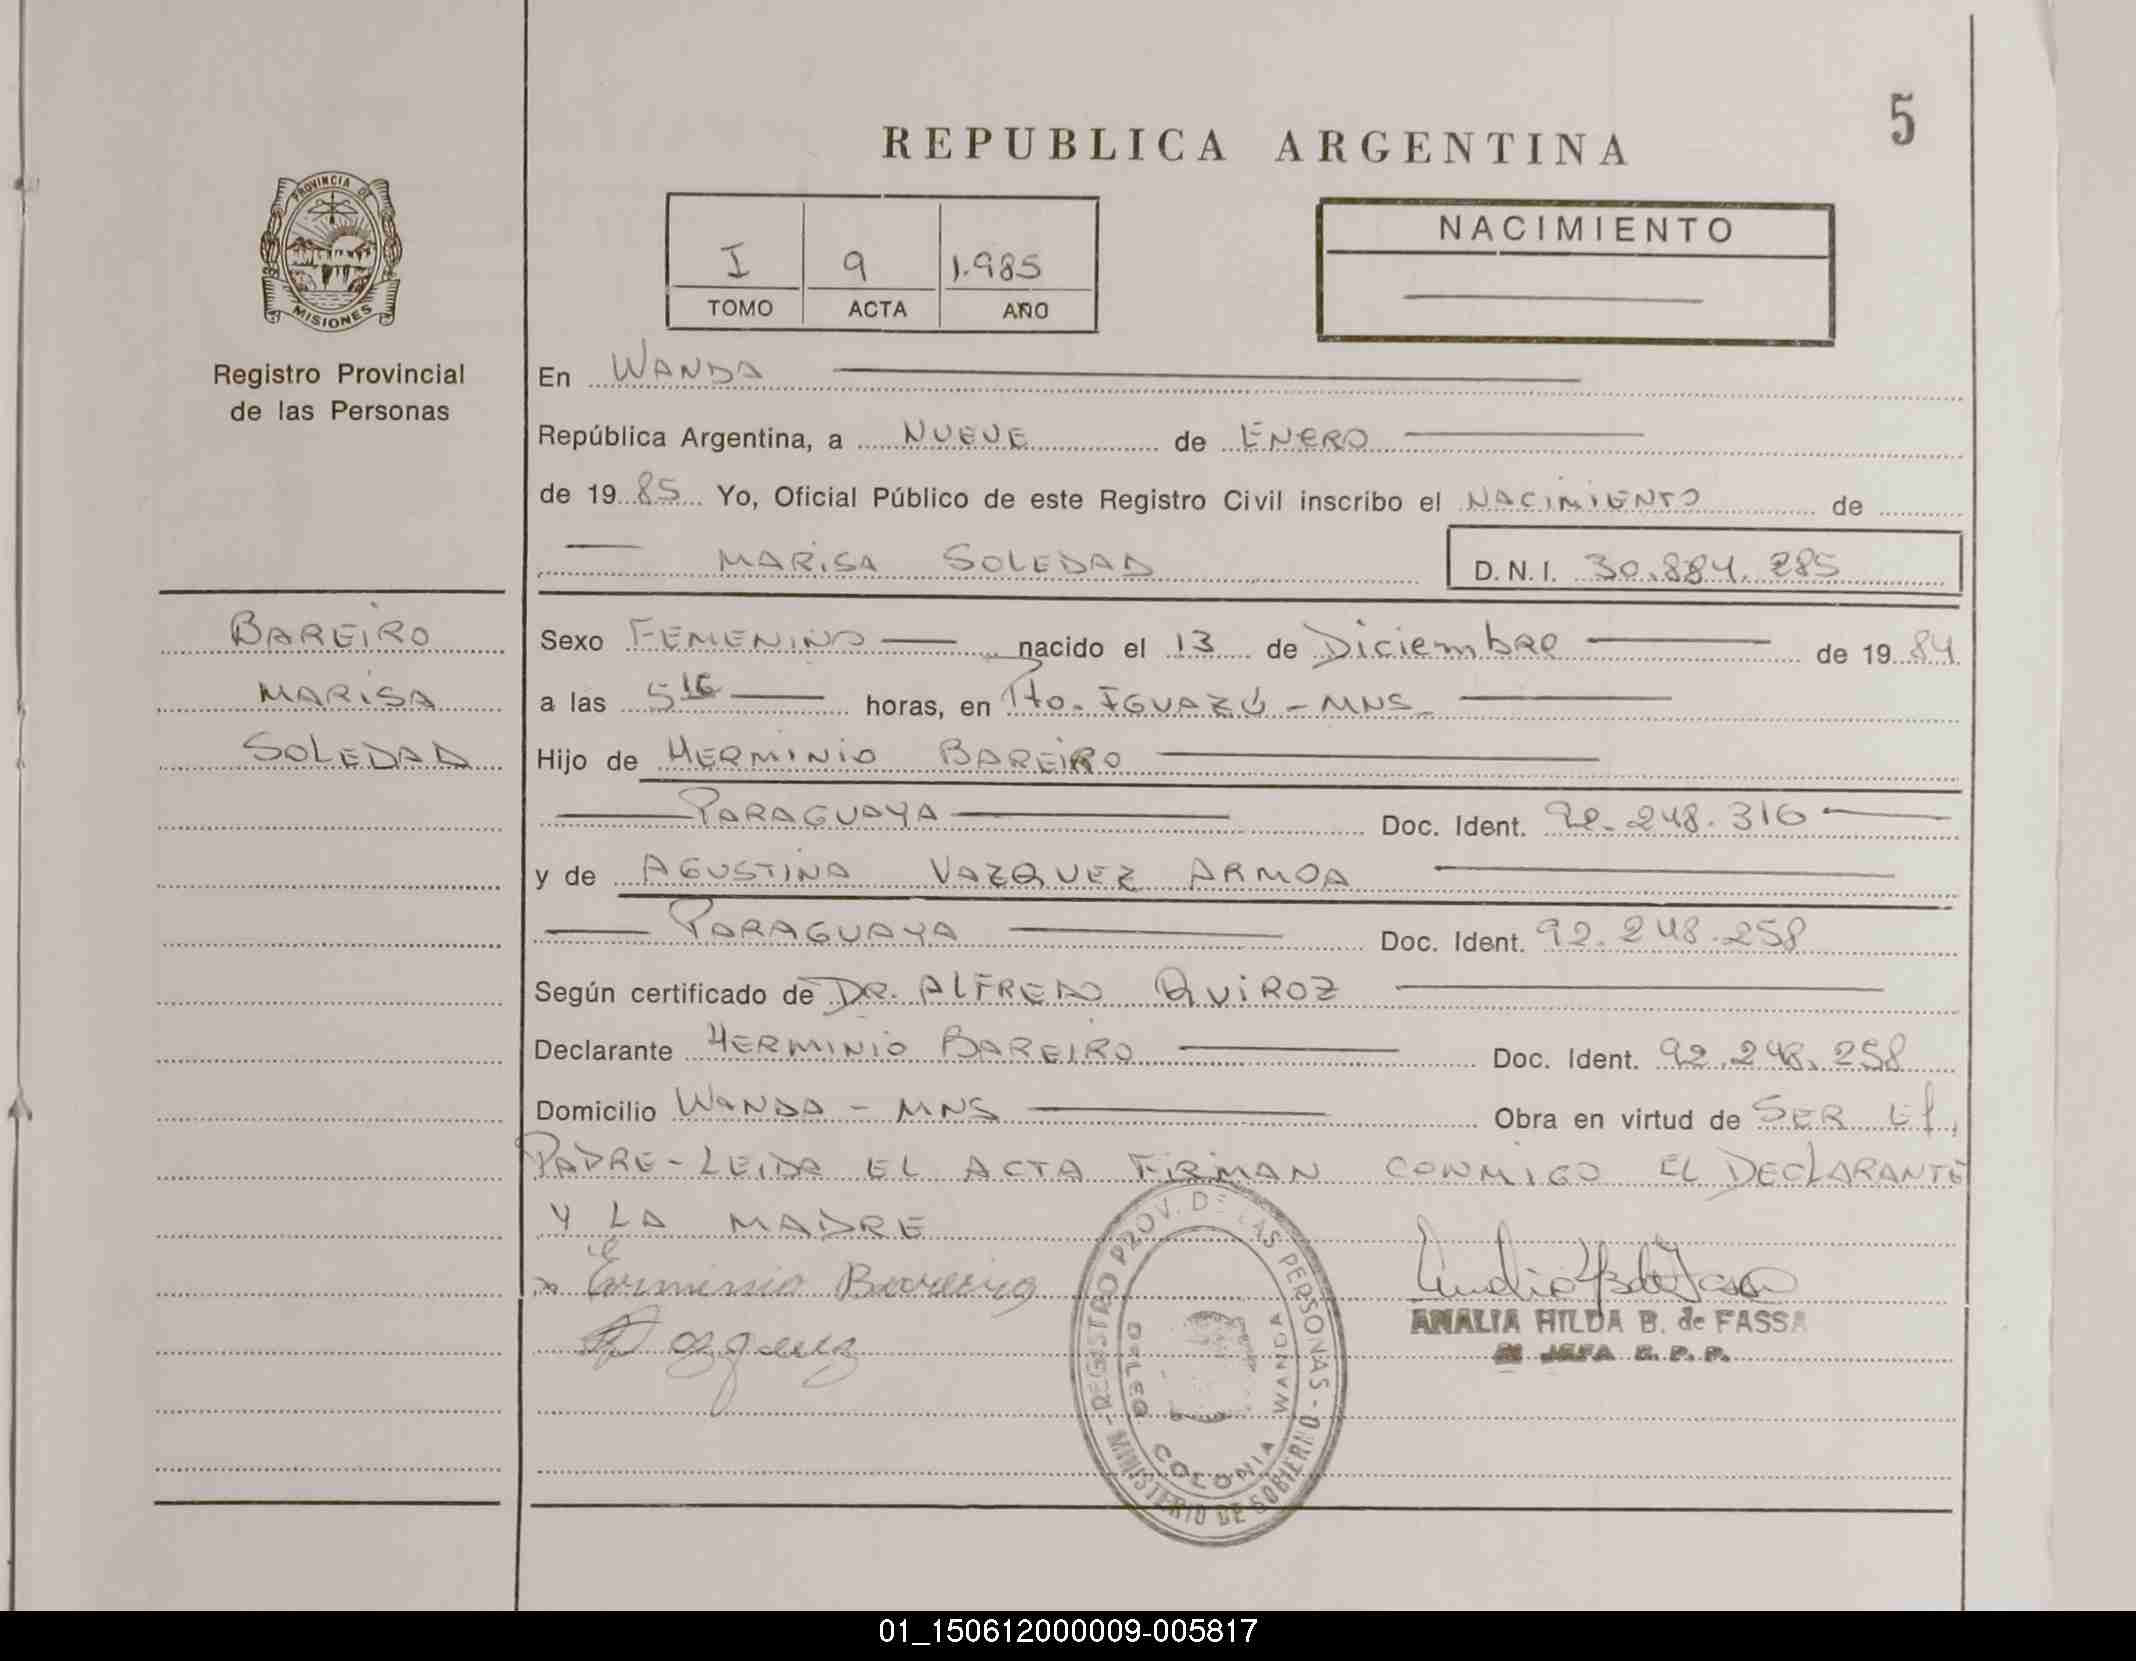 5
REPUBLICA ARGENTINA
PROVINCIA DE
MISIONES
Registro Provincial
de las Personas
I 9 1.985
TOMO ACTA AÑO
NACIMIENTO
En WANDA
República Argentina, a NUEVE de ENERO
de 19 85 Yo, Oficial Público de este Registro Civil inscribo el NACIMIENTO de
MARISA SOLEDAD D.N.I. 30.884.285
BAREIRO
MARISA
SOLEDAD
Sexo FEMENINO nacido el 13 de Diciembre de 19 84
a las 5 16 horas, en Pto. IGUAZÚ - MNS
Hijo de HERMINIO BAREIRO
PARAGUAYA Doc. Ident. 92.248.316
y de AGUSTINA VAZQUEZ ARMOA
PARAGUAYA Doc. Ident. 92.248.258
Según certificado de DR. ALFREDO QUIROZ
Declarante HERMINIO BAREIRO Doc. Ident. 92.248.258
Domicilio WANDA - MNS Obra en virtud de SER El
PADRE - LEIDA EL ACTA FIRMAN CONMIGO EL DECLARANTE
Y LA MADRE
Erminio Bareiro
Vazquez
REGISTRO PROV. DE LAS PERSONAS - MINISTERIO DE GOBIERNO
DELEG. COLONIA WANDA
AMALIA HILDA B. de FASSA
JEFA
01_150612000009-005817